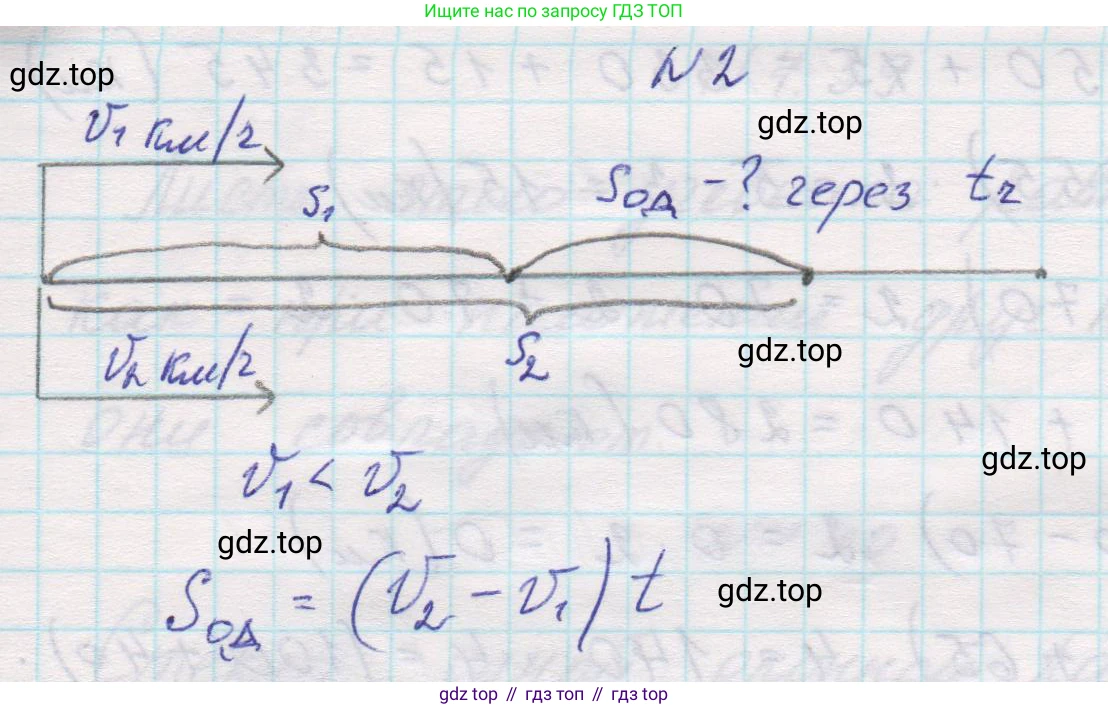 Ищите нас по запросу ГДЗ ТОП
gdz.top
N 2
v₁ км/ч
gdz.top
S₁
Sод - ? через tч
v₂ км/ч
S₂
gdz.top
v₁ < v₂
gdz.top
gdz.top
Sод = (v₂ - v₁) t
gdz.top
gdz top // гдз топ // гдз top